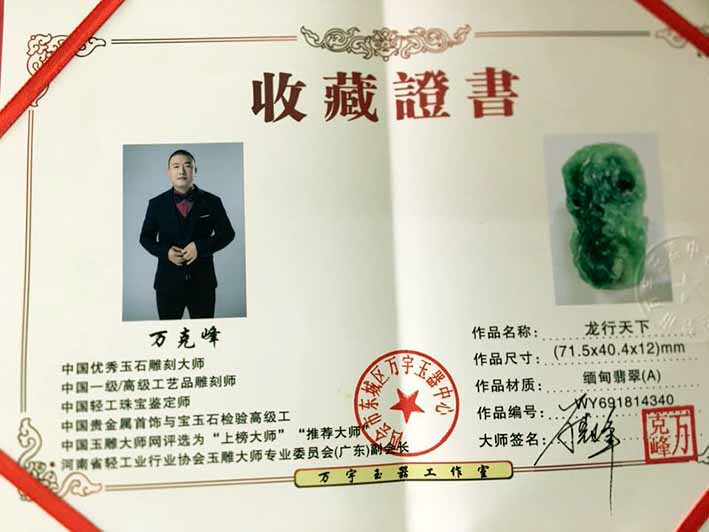 收藏證書
万克峰
中国优秀玉石雕刻大师
中国一级/高级工艺品雕刻师
中国轻工珠宝鉴定师
中国贵金属首饰与宝玉石检验高级工
中国玉雕大师网评选为“上榜大师”“推荐大师”
河南省轻工业行业协会玉雕大师专业委员会(广东)副会长
作品名称: 龙行天下
作品尺寸: (71.5x40.4x12)mm
作品材质: 缅甸翡翠(A)
作品编号: WY691814340
大师签名:
万克峰
四会市东城区万宇玉器中心
万宇玉器工作室